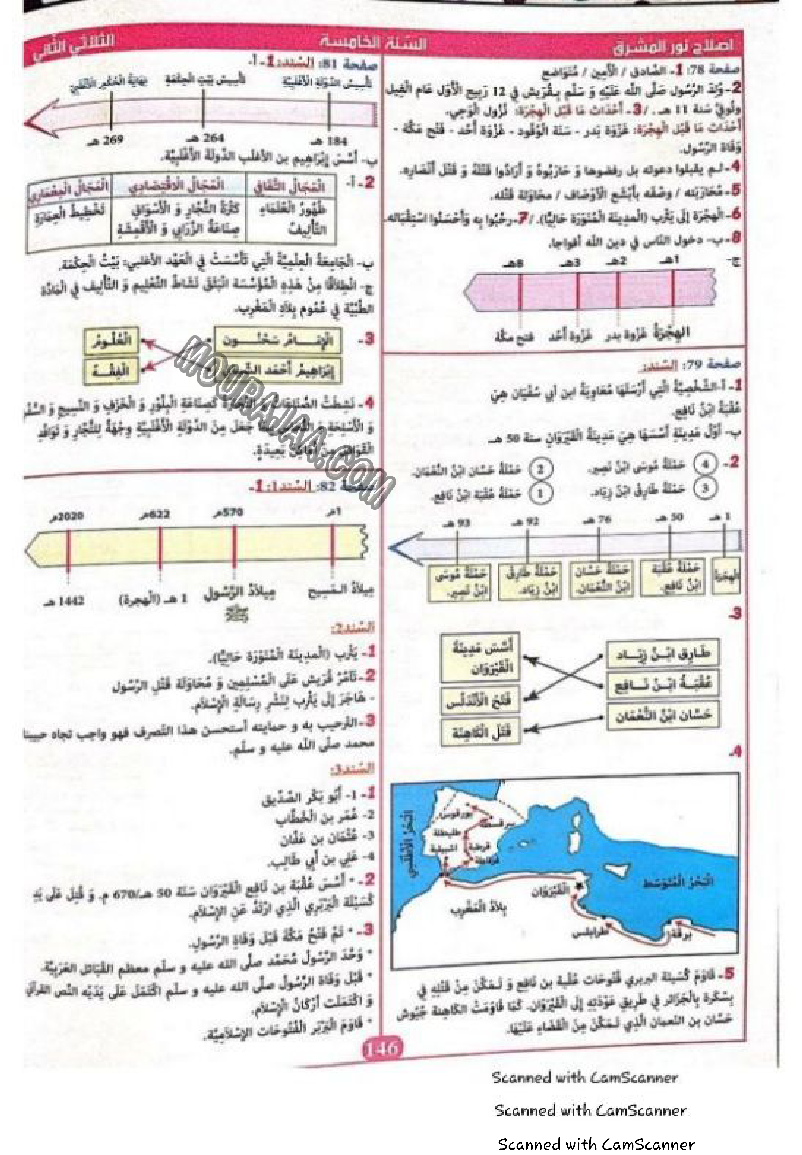 اصلاح نور المشرق
السنة الخامسة
الثلاثي الثاني
صفحة 78: 1- الصادق / الأمين / متواضع
2- وُلِدَ الرّسُول صَلَّى الله عَلَيْهِ وَ سَلَّم بِقُرَيْش في 12 رَبِيع الأَوّل عَام الفِيل
وتُوفّيَ سَنة 11 هـ . / 3- أَحْدَاث مَا قَبْلَ الْهِجْرَة: نُزُول الْوَحْي.
أَحْدَاث مَا قَبْلَ الْهِجْرَة: غَزْوَة بَدر - سَنَة الْوُفُود - غَزْوَة أُحُد - فَتْح مَكّة -
وَفَاة الرّسُول.
4- لـم يقبلوا دعوته بل رفضوها وَ حَارَبُوهُ وَ أَرَادُوا قَتْلَهُ وَ قَتْل أَنْصَاره.
5- مُحَارَبَته / وصْفه بأَبْشَع الأَوْصَاف / محاوَلَة قَتْله.
6- الْهِجْرَة إلَى يَثْرِب (الْمَدِينَة الْمُنَوَّرَة حَالِيًّا). / 7- رحّبُوا به وأَحْسَنُوا اسْتِقْبَاله.
8- ب- دخول النّاس في دين الله أفواجا.
ج-
1هـ 2هـ 3هـ 8هـ
الْهِجْرَةُ غَزْوَة بدر غَزْوَة أُحُد فتح مكّة
صفحة 79: السّند:
1- أ-الشّخْصِيَّةُ الّتِي أَرْسَلَهَا مُعَاوِيَةُ ابن أَبِي سُفْيَان هِيَ
عُقْبَةُ ابْنُ نَافِع.
ب- أَوَّلُ مَدِينَةٍ أَسّسَهَا هِيَ مَدِينَةُ الْقَيْرَوَان سنة 50 هـ.
2- 4 حَمْلَةُ مُوسَى ابْن نُصَير. 2 حَمْلَةُ حَسَّان ابْنُ النُّعْمَان.
3 حَمْلَةُ طَارِق ابْنُ زِيَاد. 1 حَمْلَةُ عُقْبَة ابْنُ نَافِع.
1 هـ 50 هـ 76 هـ 92 هـ 93 هـ
الْهِجْرَةُ
حَمْلَةُ عُقْبَة ابْنُ نَافِع.
حَمْلَةُ حَسَّان ابْنُ النُّعْمَان.
حَمْلَةُ طَارِق ابْنُ زِيَاد.
حَمْلَةُ مُوسَى ابْنُ نصير.
3-
طَارِق ابْـنُ زِيَـاد
أَسَّسَ مَدِينَةَ الْقَيْرَوَان
عُقْبَـةُ ابْـنُ نَـافِع
فَتْحُ الْأَنْدَلُس
حَسَّان ابْنُ النُّعْمَان
قَتْلُ الْكَاهِنَة
4-
الْبَحْرُ الْأَطْلَسِي
سرقسطة
طليطلة
اشبيلية
قرطبة
غرناطة
الْبَحْرُ الْمُتَوَسّط
الْقَيْرَوَان
بِلَادُ الْمَغْرِب
طرابلس
برقة
5- قَاوَمَ كُسَيْلَة البربري فُتُوحَات عُقْبة بن نافِع وَ تَمَكّنَ مِنْ قَتْلِهِ فِي
بِسْكرة بِالْجَزائر في طَرِيق عَوْدَتِهِ إلَى الْقَيْرَوان. كَمَا قَاوَمَتْ الكَاهِنة جُيُوش
حَسَّان بن النعمان الّذي تَمَكّنَ مِنَ الْقَضَاءِ عَلَيْهَا.
صفحة 81: السّند: 1- أ-
تأسيسُ الدّوْلَةِ الْأَغْلَبِيَّة تأسيسُ بَيْت الْحِكْمَة نِهَايَةُ
184 هـ 264 هـ 269 هـ
ب- أَسّسَ إِبْرَاهِيم بن الأغلب الدّولَة الْأَغْلَبِيّة.
2- أ-
الْمَجَالُ الثّقَافِي الْمَجَالُ الاقْتِصَادِي الْمَجَالُ الْمِعْمَاري
ظُهُورُ الْعُلَمَاء كَثْرَةُ التُّجَّار وَ الْأَسْوَاق تَخْطِيطُ
التَّأْلِيفُ صِنَاعَةُ الزَّرَابِي وَ الْأَقْمِشَة
ب- الْجَامِعَةُ الْعِلْمِيَّةُ الّتِي تَأَسّسَتْ فِي الْعَهْدِ الأغلبي: بَيْتُ الْحِكْمَة.
ج- انْطِلَاقًا مِنْ هَذِهِ الْمُؤَسّسَة انْبَثَقَ نَشَاطُ التّعْلِيم وَ التّأْلِيف في
الطّبّيّة في عُمُوم بِلَادِ الْمَغْرِب.
3-
الْإِمَـامُ سَحْنُـون
الْعُلُومُ
إبْرَاهِيمُ أَحْمَد
الْفِقْهُ
4- نَشِطَتْ وَ التّجَارَةُ كَصِنَاعَةِ الْبِلَّوْرِ وَ الْخَزَفِ وَ النّسِيجِ وَ
وَ الْأَسْلِحَة جَعَلَ مِنَ الدّوْلَةِ الْأَغْلَبِيَّةِ وِجْهَةً لِلتُّجَّار وَ
الْقَوَافِل مِنْ بَعِيدَةٍ.
MOURAJAA.COM
صفحة 82: السّند1: 1-
1م 570م 622م 2020م
مِيلَادُ الـمَسِيح مِيلَادُ الرّسُول ﷺ 1 هـ (الْهِجرة) 1442 هـ
السّند2:
1- يَثْرِب (الْمَدِينَة الْمُنَوّرَة حَالِيًّا).
2- تَآمُرُ قُرَيْش عَلَى الْمُسْلِمِين وَ مُحَاوَلَة قَتْلِ الرّسُول
- هَاجَرَ إلَى يَثْرِب لِنَشْرِ رِسَالَةِ الْإِسْلَام.
3- التّرحيب به و حمايته أستحسن هذا التّصرف فهو واجب تجاه حبيبنا
محمد صلّى الله عليه و سلّم.
السّند3:
1- 1- أَبُو بَكْر الصّدّيق
2- عُمَر بن الْخَطَّاب
3- عُثْمَان بن عَفّان
4- عَلِي بن أَبِي طَالِب.
2- * أَسّسَ عُقْبَة بن نَافِع الْقَيْرَوَان سَنَة 50 هـ/670 م. وَ قُتِلَ عَلَى يَدِ
كُسَيْلَة الْبَرْبَري الّذِي ارْتَدَّ عَنِ الإِسْلَام.
3- * تَمَّ فَتْحُ مَكّة قَبْلَ وَفَاةِ الرّسُولِ.
* وَحّدَ الرّسُولُ مُحَمّد صلّى الله عليه و سلّم معظم القَبَائل العَرَبِيّة.
* قَبْلَ وَفَاةِ الرّسُول صلّى الله عليه و سلّم اكْتَمَلَ عَلَى يَدَيْه النّص القرآني
وَ اكْتَمَلَتْ أَرْكَانُ الْإِسْلَام.
* قَاوَمَ الْبَرْبَر الْفُتُوحَات الإسْلَامِيّة.
146
Scanned with CamScanner
Scanned with CamScanner
Scanned with CamScanner